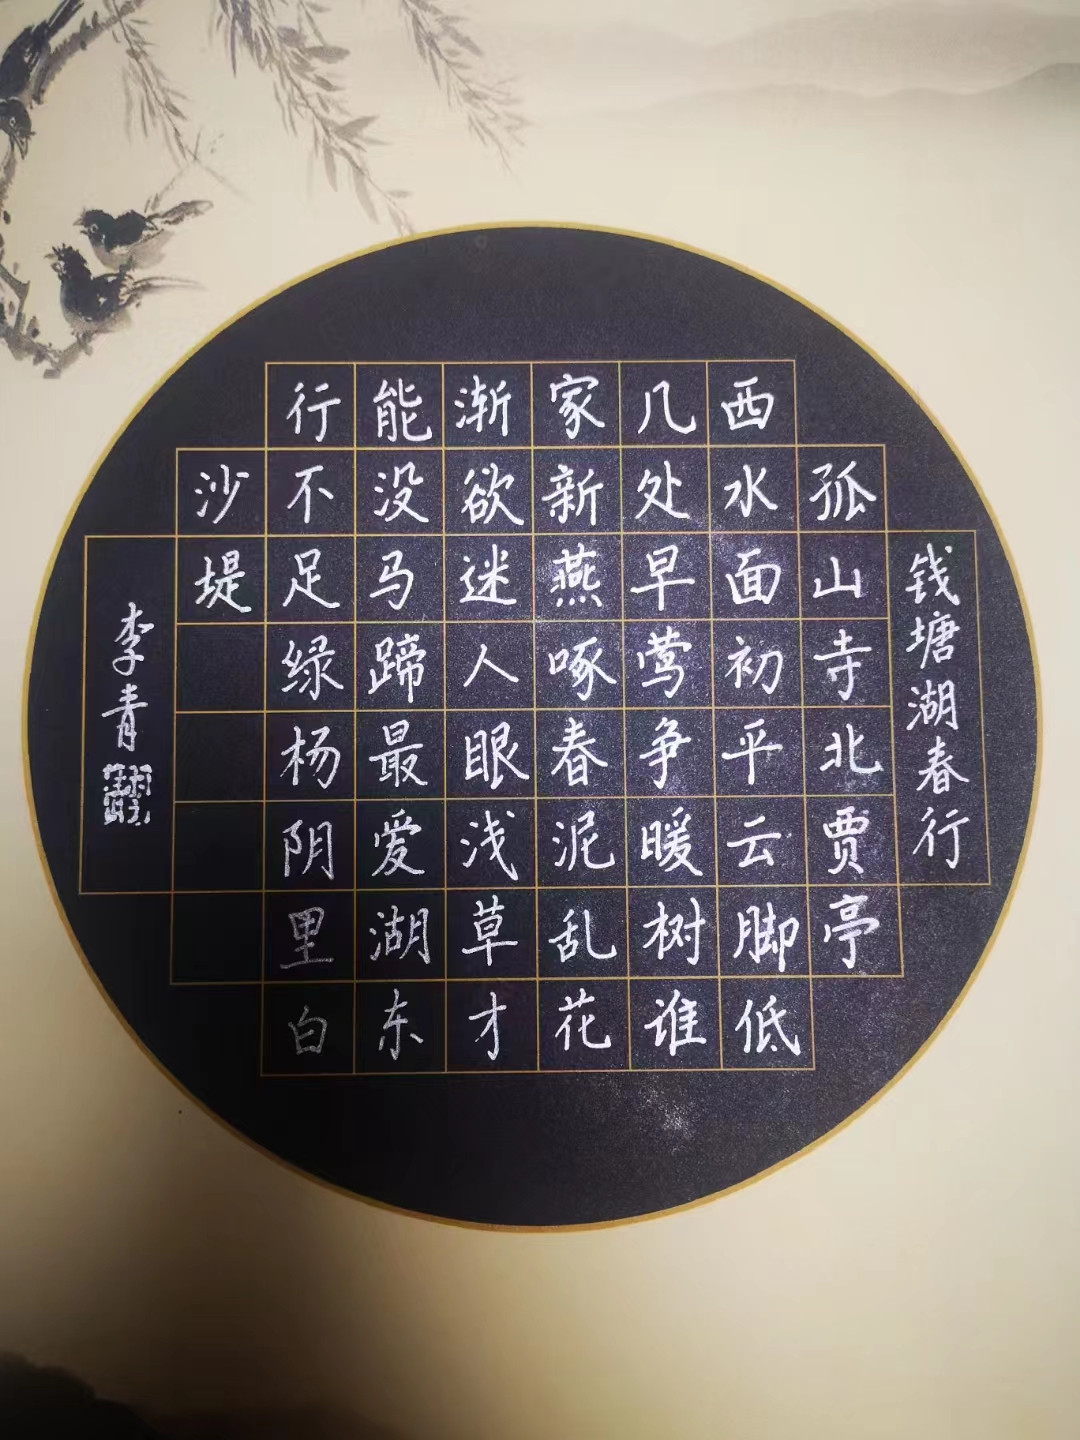 钱塘湖春行
孤山寺北贾亭
西水面初平云脚低
几处早莺争暖树谁
家新燕啄春泥乱花
渐欲迷人眼浅草才
能没马蹄最爱湖东
行不足绿杨阴里白
沙堤
李青